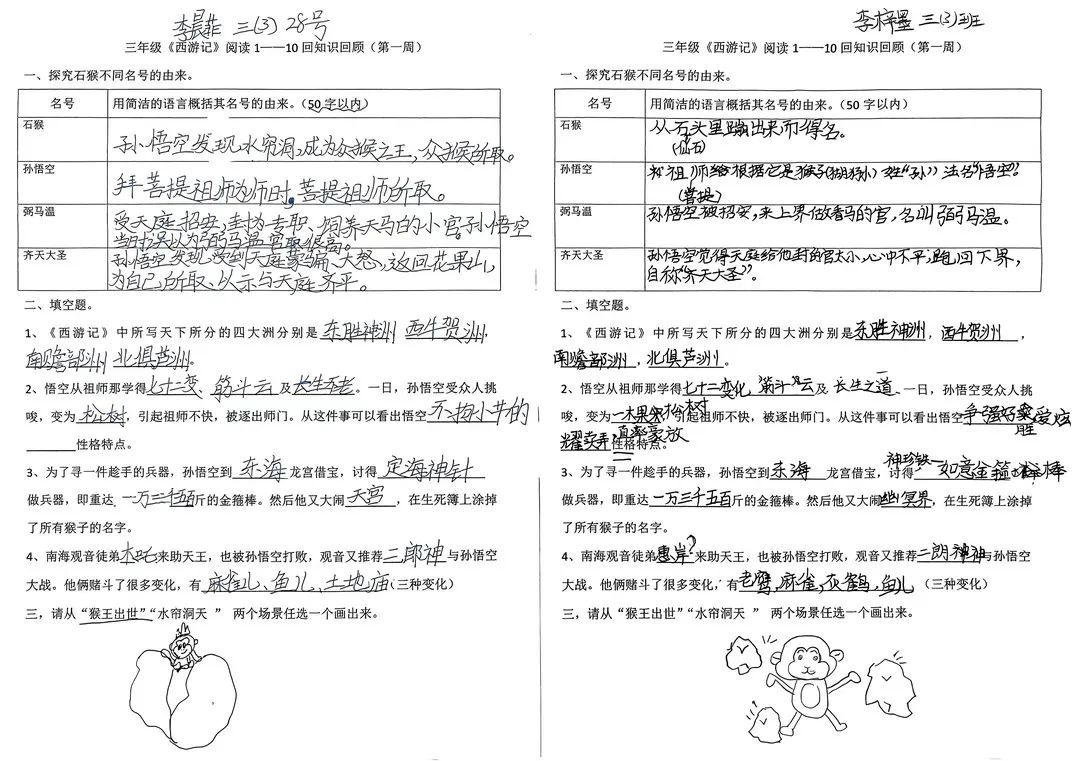 李晨菲 三(3) 28号
三年级《西游记》阅读 1——10 回知识回顾（第一周）
一、探究石猴不同名号的由来。
名号 用简洁的语言概括其名号的由来。（50 字以内）
石猴 孙悟空发现水帘洞,成为众猴之王,众猴所取。
孙悟空 拜菩提祖师为师时,菩提祖师所取。
弼马温 受天庭招安,封为专职、饲养天马的小官。孙悟空
当时误以为弼马温官职很高。
齐天大圣 孙悟空发现受到天庭蒙骗、大怒,返回花果山,
为自己所取、以示与天庭齐平。
二、填空题。
1、《西游记》中所写天下所分的四大洲分别是 东胜神洲 西牛贺洲,
南赡部洲 北俱芦洲。
2、悟空从祖师那学得七十二变、筋斗云及长生不老。一日，孙悟空受众人挑
唆，变为 松树，引起祖师不快，被逐出师门。从这件事可以看出悟空
性格特点。
3、为了寻一件趁手的兵器，孙悟空到 东海 龙宫借宝，讨得 定海神针
做兵器，即重达 一万三千五百斤的金箍棒。然后他又大闹 天宫，在生死簿上涂掉
了所有猴子的名字。
4、南海观音徒弟木吒来助天王，也被孙悟空打败，观音又推荐二郎神与孙悟空
大战。他俩赌斗了很多变化，有 麻雀儿、鱼儿、土地庙（三种变化）
三，请从“猴王出世”“水帘洞天 ” 两个场景任选一个画出来。
李梓墨 三(3)班
三年级《西游记》阅读 1——10 回知识回顾（第一周）
一、探究石猴不同名号的由来。
名号 用简洁的语言概括其名号的由来。（50 字以内）
石猴 从石头里蹦出来而得名。
(仙石)
孙悟空 祖师给根据它是猴子(猢狲)姓“孙”法名“悟空”。
(菩提)
弼马温 孙悟空被招安,来上界做看马的官,名叫弼马温。
齐天大圣 孙悟空觉得天庭给他封的官太小,心中不平,跑回下界,
自称“齐天大圣”。
二、填空题。
1、《西游记》中所写天下所分的四大洲分别是东胜神洲，西牛贺洲，
南赡部洲，北俱芦洲。
2、悟空从祖师那学得七十二变化 筋斗云及 长生之道。一日，孙悟空受众人挑
唆，变为一棵松树引起祖师不快，被逐出师门。从这件事可以看出悟空争强好胜 爱炫
耀卖弄,直率豪放性格特点。
神珍铁
3、为了寻一件趁手的兵器，孙悟空到东海 龙宫借宝，讨得 如意金箍棒
做兵器，即重达一万三千五百斤的金箍棒。然后他又大闹幽冥界，在生死簿上涂掉
了所有猴子的名字。
4、南海观音徒弟惠岸?来助天王，也被孙悟空打败，观音又推荐二郎神与孙悟空
大战。他俩赌斗了很多变化，有老鹰,麻雀,灰鹤,鱼儿（三种变化）
三，请从“猴王出世”“水帘洞天 ” 两个场景任选一个画出来。